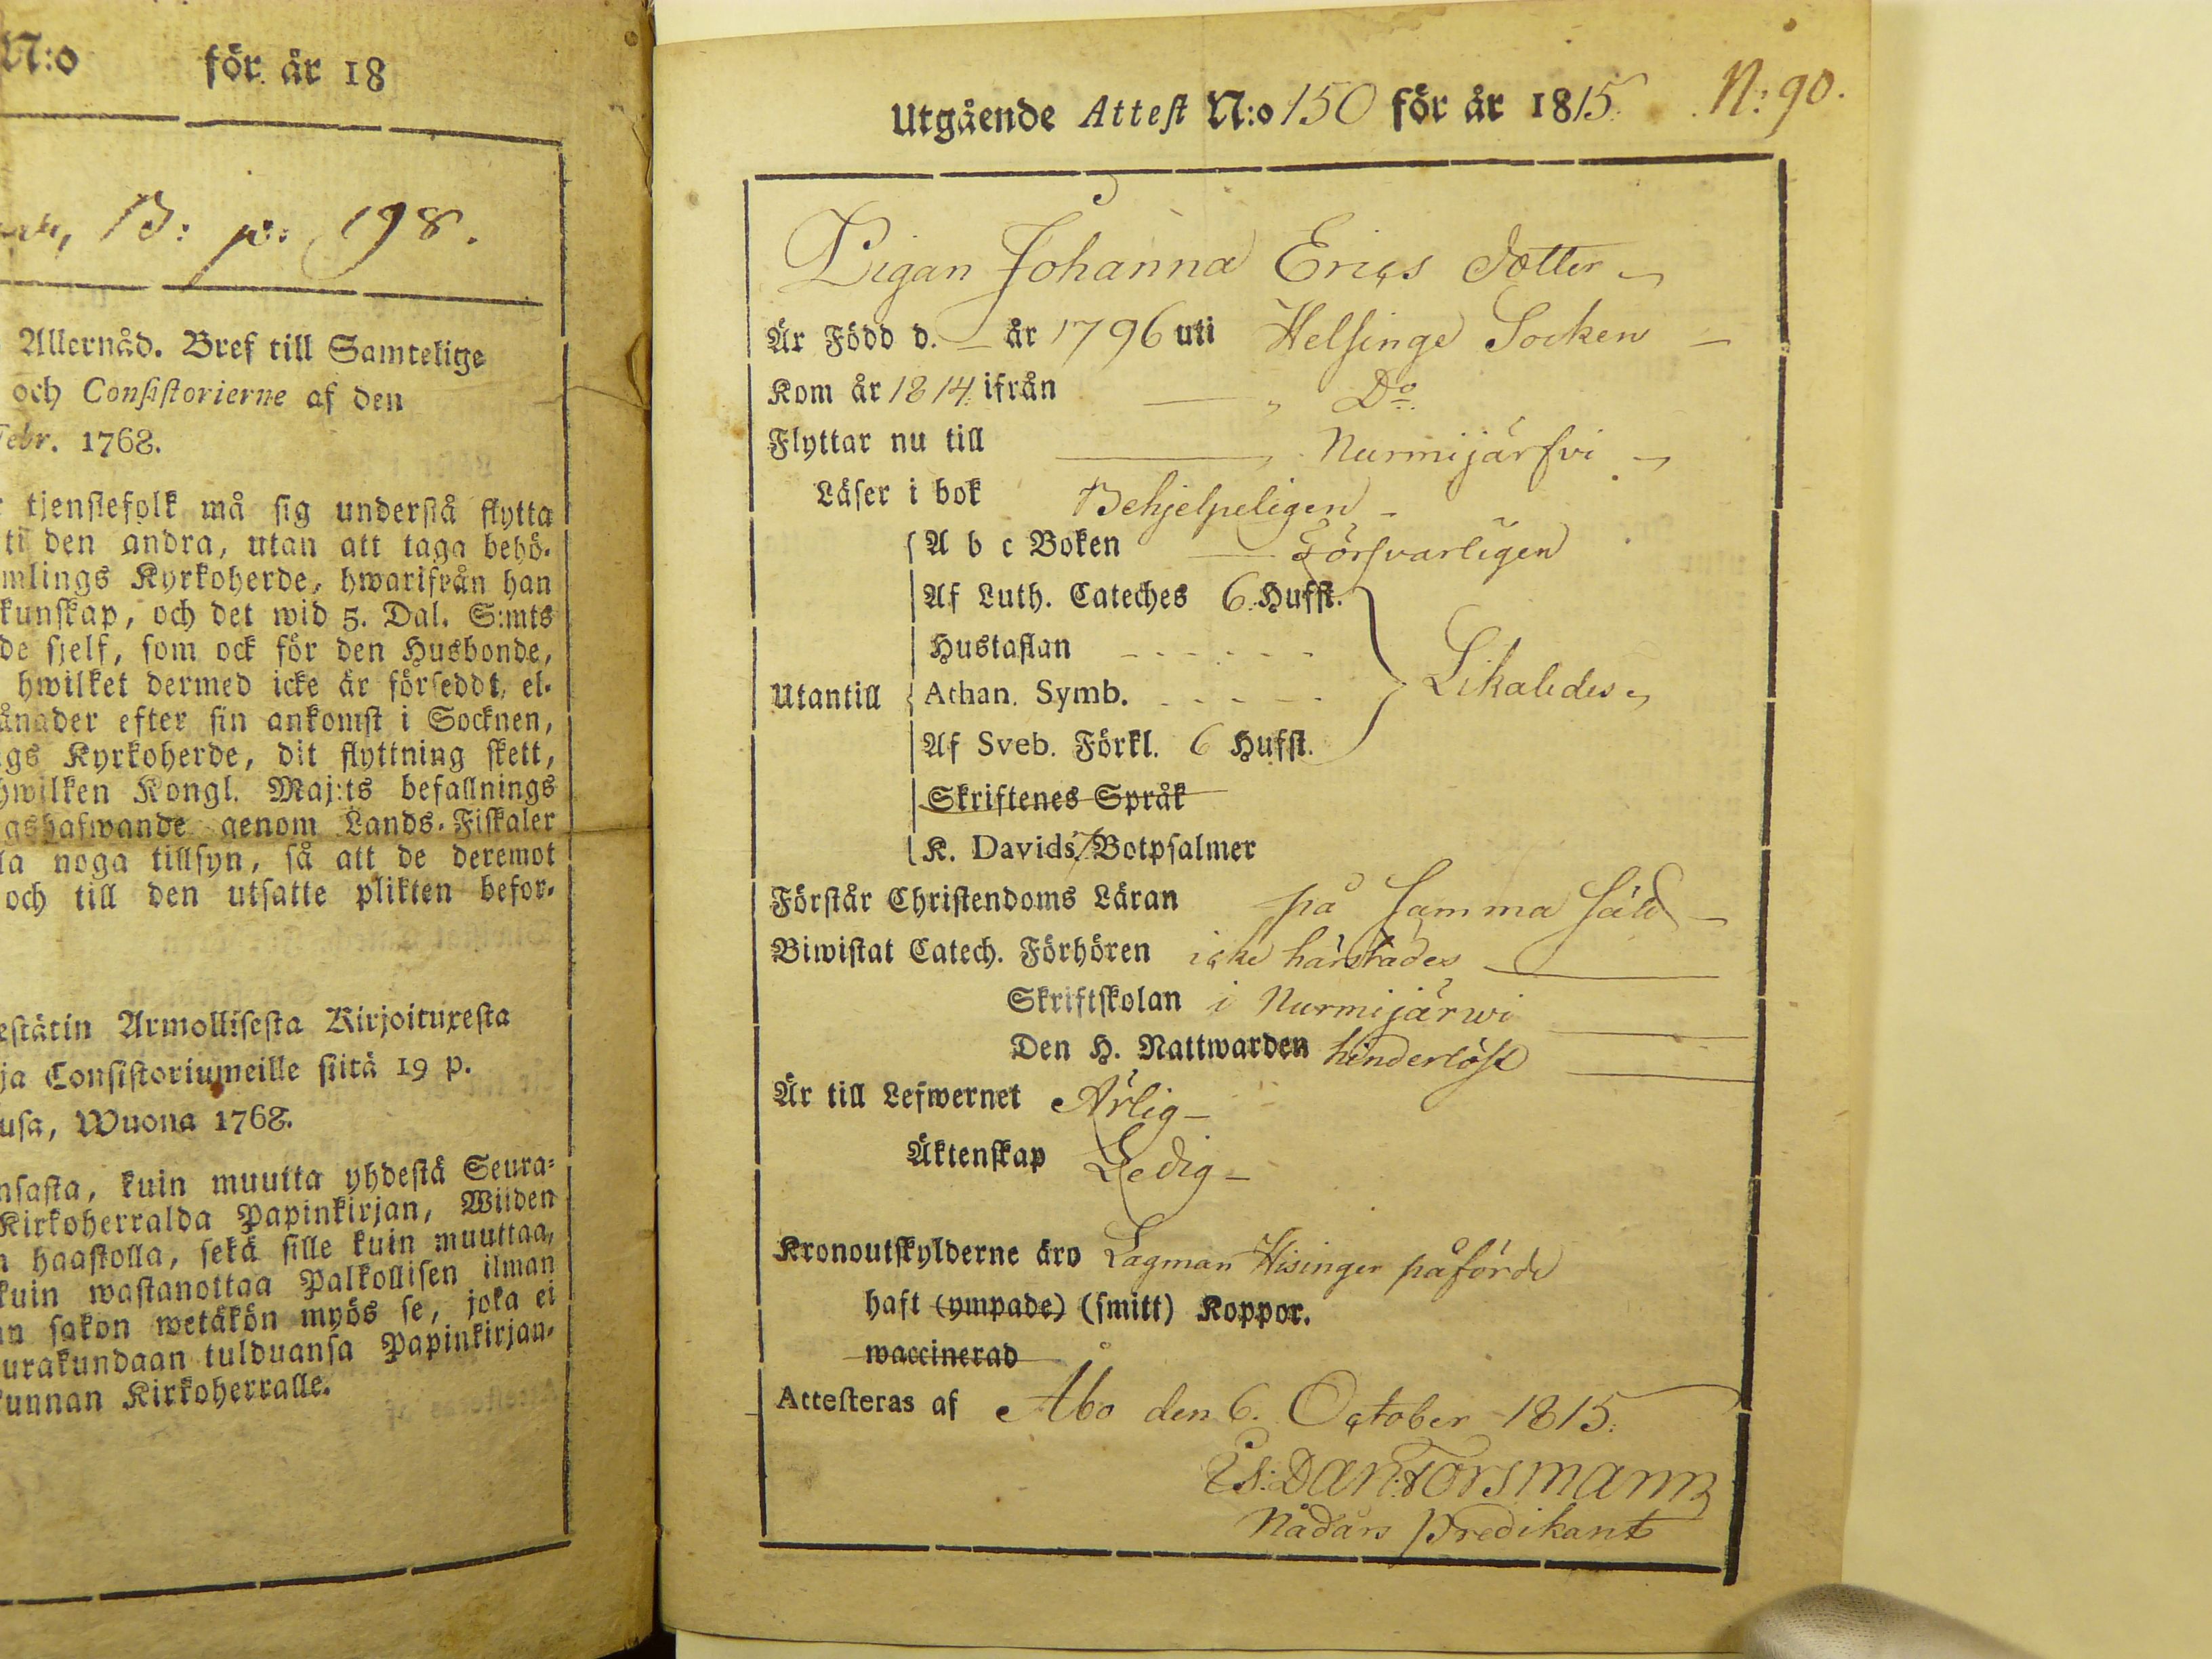 N:o för år 18
B: p: 198.
Allernåd. Bref till Samtelige
och Consistorierne af den
Febr. 1768.
tjenstefolk må sig understå flytta
den andra, utan att taga behö-
mlings Kyrkoherde, hwarifrån han
kunskap, och det wid 5. Dal. S:mts
de sjelf, som ock för den Husbonde,
hwilket dermed icke är försedt, el-
ånader efter sin ankomst i Socknen,
gs Kyrkoherde, dit flyttning skett,
hwilken Kongl. Maj:ts befallnings
gshafwande genom Lands-Fiskaler
la noga tillsyn, så att de deremot
och till den utsatte plikten befor-
estätin Armollisesta Kirjoituxesta
ja Consistoriumeille siitä 19 p.
usa, Wuona 1768.
nsasta, kuin muutta yhdestä Seura-
Kirkoherralda Papinkirjan, Wiiden
n haastolla, sekä sille kuin muuttaa,
kuin wastanottaa Palkollisen ilman
an sakon wetäkön myös se, joka ei
urakundaan tulduansa Papinkirjan-
kunnan Kirkoherralle.
Utgående Attest N:o 150 för år 1815. N: 90.
Pigan Johanna Erics dotter
Är Född d. — år 1796 uti Helsinge Socken —
Kom år 1814. ifrån — " Do.
Flyttar nu till — Nurmijärfvi
Läser i bok Behjelpeligen -
A b c Boken — Försvarligen
Af Luth. Cateches 6. Hufst.
Hustaflan - - - - - -
Utantill Athan. Symb. - - - - - Likaledes
Af Sveb. Förkl. 6 Hufst.
Skriftenes Språk
K. Davids 7 Botpsalmer
Förstår Christendoms Läran på samma sätt —
Biwistat Catech. Förhören icke härstädes
Skriftskolan i Nurmijärwi
Den H. Nattwarden hinderlöst
Är till Lefwernet Ärlig —
Äktenskap Ledig —
Kronoutskylderne äro Lagman Hisinger påförde
haft (ympade) (smitt) Koppor.
waccinerad
Attesteras af Åbo den 6. October 1815.
Dan: Forsmann
Nådårs Predikant